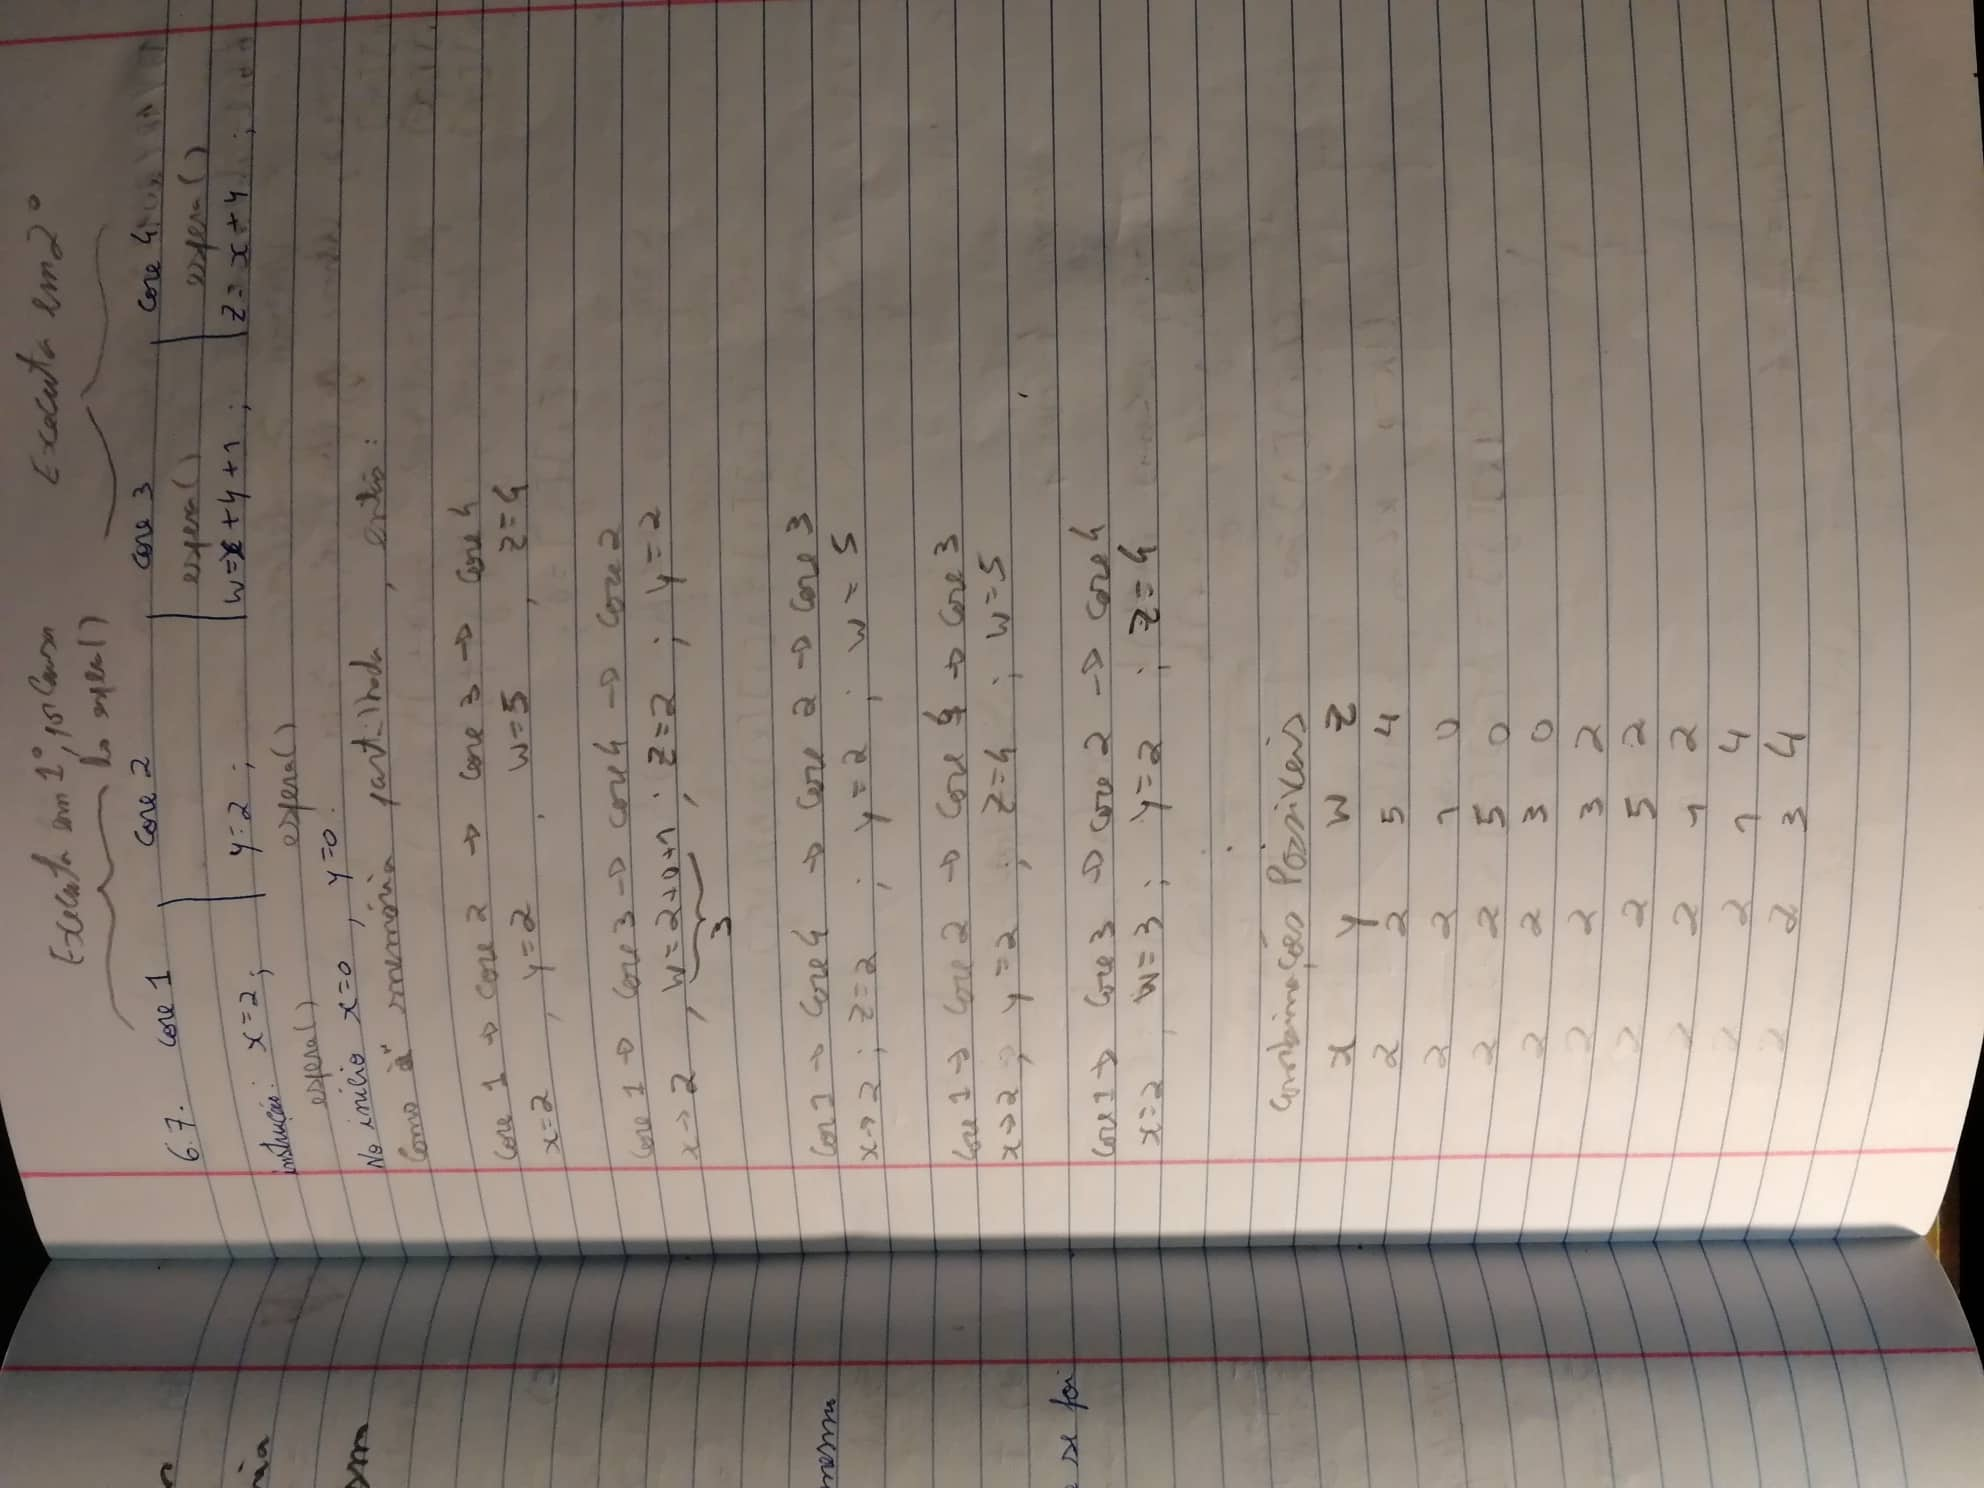 Executa em 1º, por causa Executa em 2º
do espera()
6.7. Core 1 Core 2 Core 3 Core 4
espera() espera()
instrução: x=2; y=2; w=x+y+1; z=x+y;
espera() espera()
No início x=0, y=0.
Como a memória partilhada, então:
Core 1 → Core 2 → Core 3 → Core 4
x=2, y=2, w=5, z=4
Core 1 → Core 3 → Core 4 → Core 2
x→2, w=2+0+1; z=2; y=2
3
Core 1 → Core 4 → Core 2 → Core 3
x→2; z=2; y=2; w=5
Core 1 → Core 2 → Core 4 → Core 3
x→2, y=2; z=4; w=5
Core 1 → Core 3 → Core 2 → Core 4
x=2, w=3; y=2; z=4
Combinações Possíveis
x y w z
2 2 5 4
2 2 1 0
2 2 5 0
2 2 3 0
2 2 3 2
2 2 5 2
2 2 1 2
2 2 1 4
2 2 3 4
nesmu
e x foi